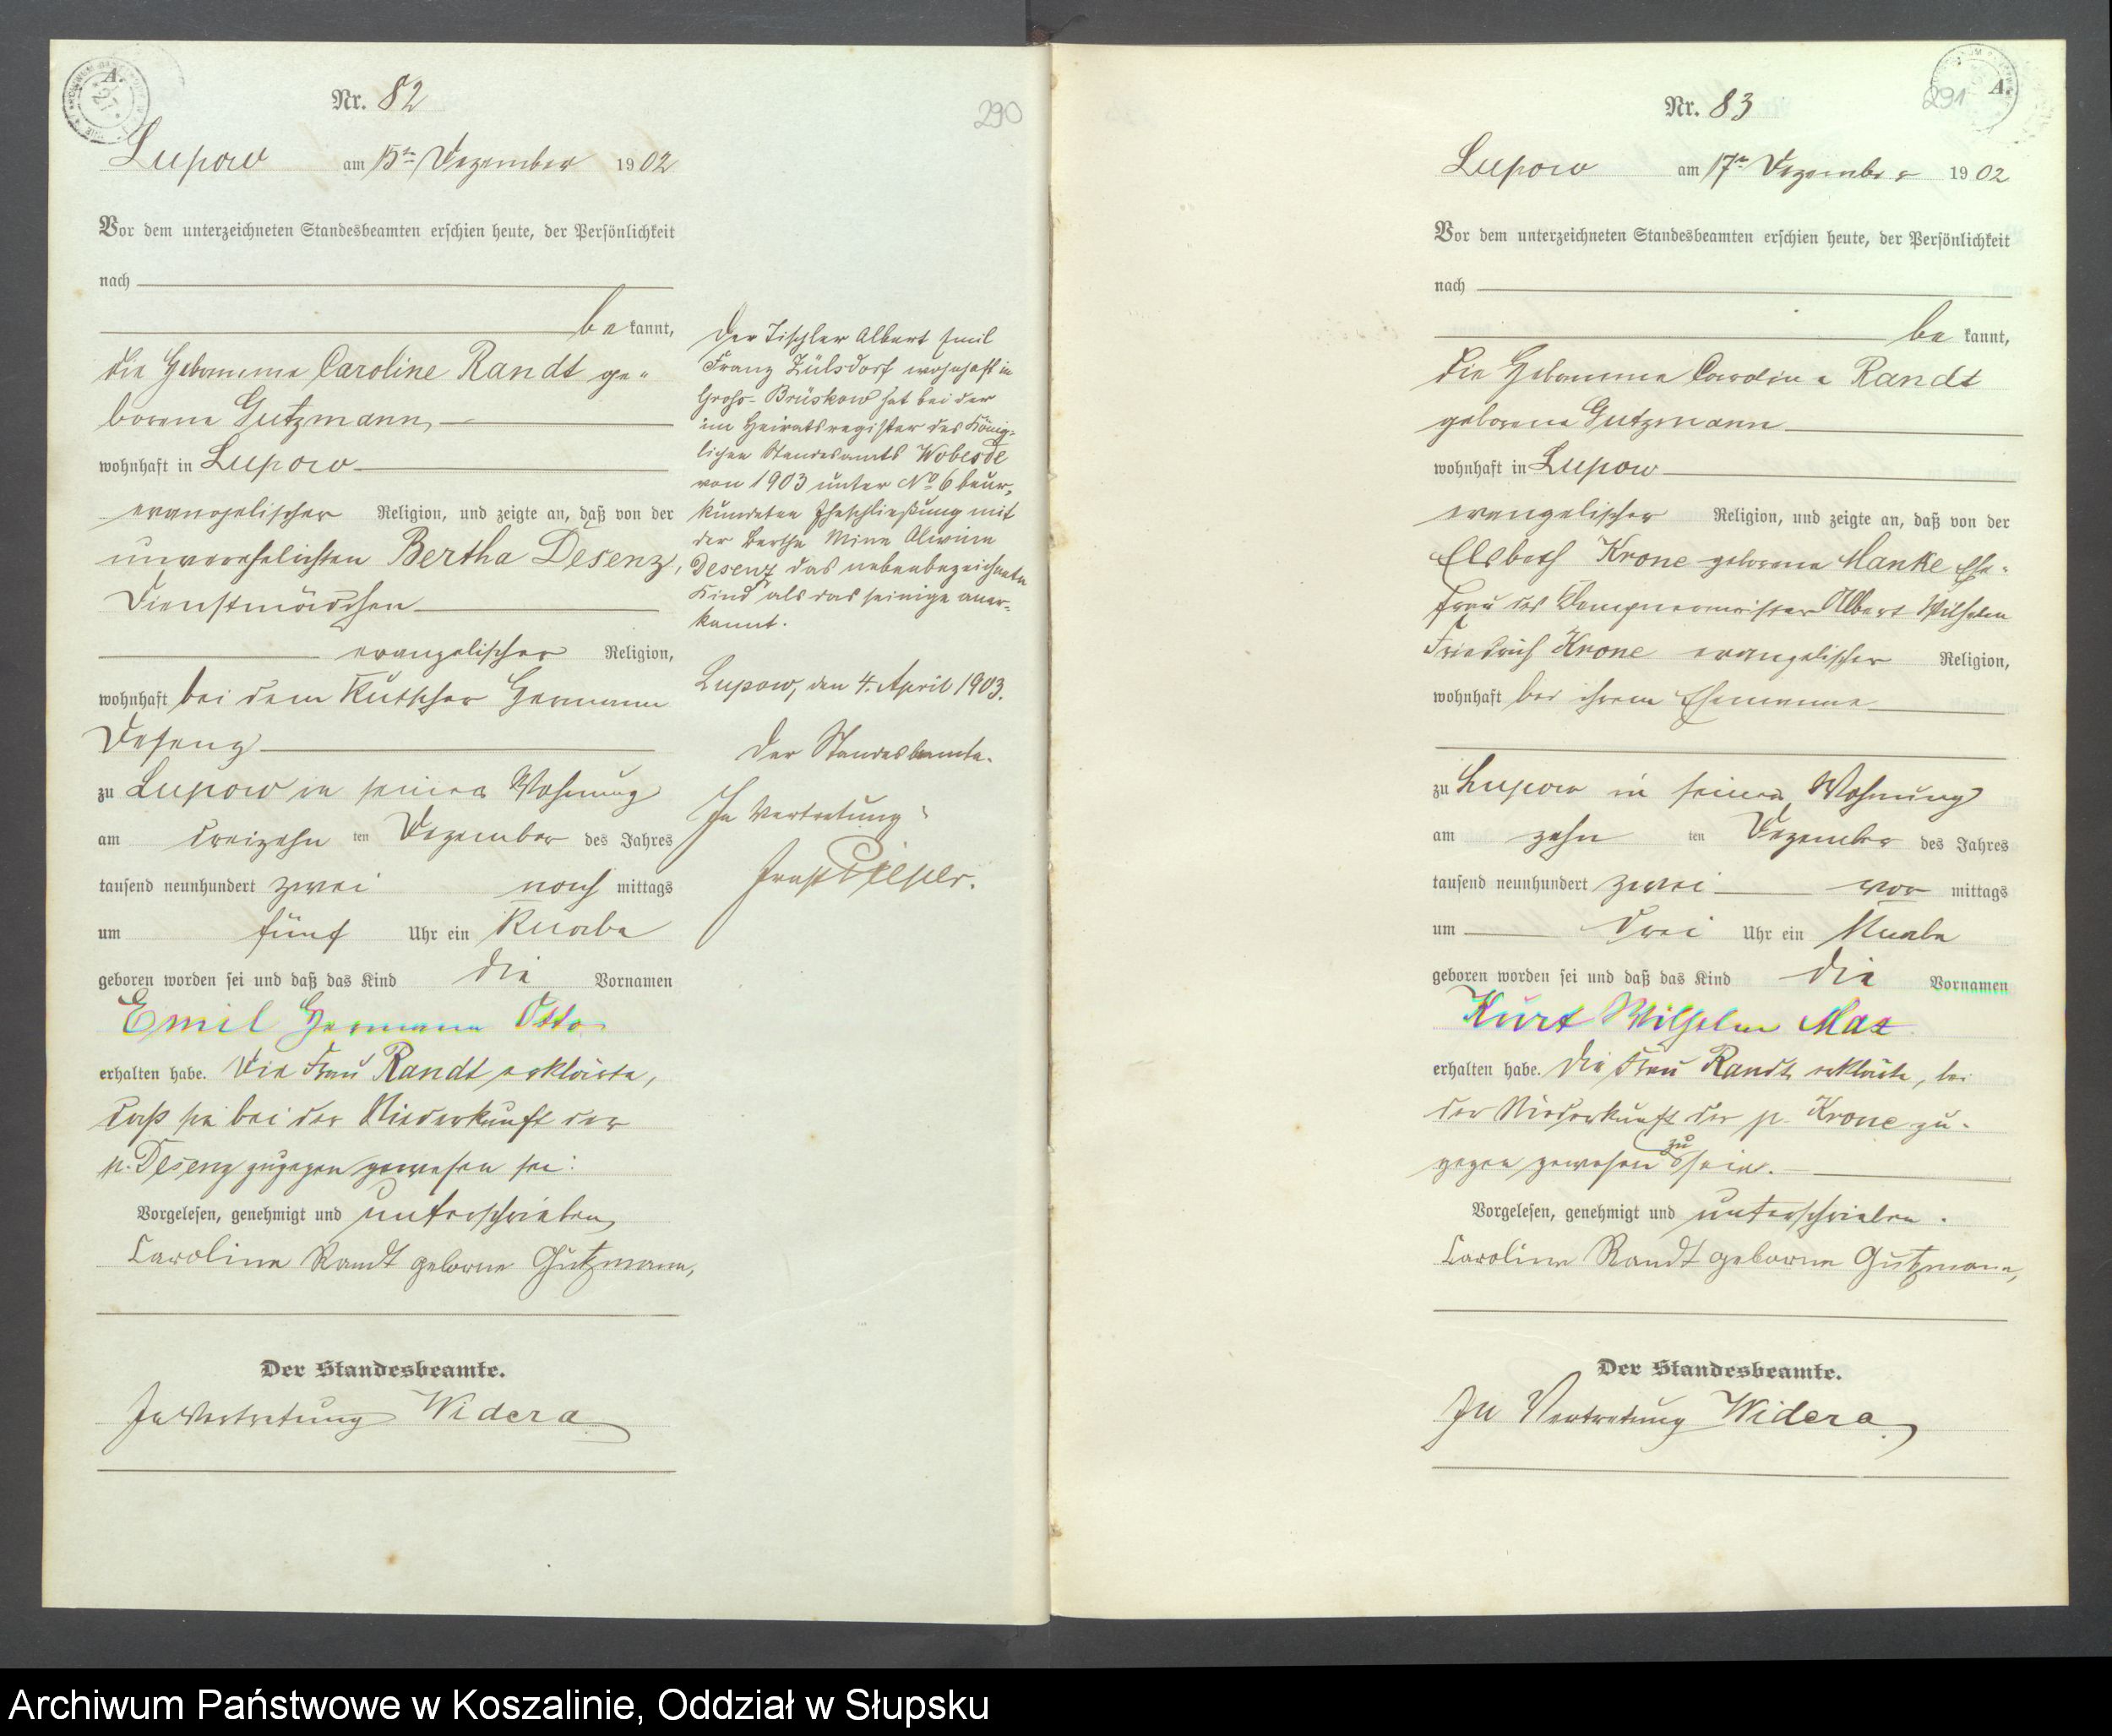 A.
Nr. 82
290
Lupow am 15ten Dezember 1902
Vor dem unterzeichneten Standesbeamten erschien heute, der Persönlichkeit
nach
bekannt,
die Hebamme Caroline Randt ge-
borene Gutzmann,
wohnhaft in Lupow
evangelischer Religion, und zeigte an, daß von der
unverehelichten Bertha Desenz,
Dienstmädchen
evangelischer Religion,
wohnhaft bei dem Kutscher Hermann
Desenz
zu Lupow in seiner Wohnung
am dreizehnten Dezember des Jahres
tausend neunhundert zwei nachmittags
um fünf Uhr ein Knabe
geboren worden sei und daß das Kind die Vornamen
Emil Hermann Otto
erhalten habe. Die Frau Randt erklärte,
daß sie bei der Niederkunft der
p. Desenz zugegen gewesen sei.
Vorgelesen, genehmigt und unterschrieben
Caroline Randt geborne Gutzmann,
Der Standesbeamte.
In Vertretung Widera
Der Tischler Albert Emil
Franz Zülsdorf wohnhaft in
Groß-Brüskow hat bei der
im Heiratsregister des König-
lichen Standesamts Wobesde
von 1903 unter No 6 beur-
kundeten Eheschließung mit
der Bertha Mina Alwine
Desenz das nebenbezeichnete
Kind als das seinige aner-
kannt.
Lupow, den 4. April 1903.
Der Standesbeamte.
In Vertretung:
A.
291
Nr. 83
Lupow am 17ten Dezember 1902
Vor dem unterzeichneten Standesbeamten erschien heute, der Persönlichkeit
nach
bekannt,
die Hebamme Caroline Randt
geborene Gutzmann
wohnhaft in Lupow
evangelischer Religion, und zeigte an, daß von der
Elsbeth Krone geborene Manke Ehe-
frau des Albert Wilhelm
Friedrich Krone evangelischer Religion,
wohnhaft bei ihrem Ehemanne
zu Lupow in seiner Wohnung
am zehnten Dezember des Jahres
tausend neunhundert zwei vormittags
um drei Uhr ein Knabe
geboren worden sei und daß das Kind die Vornamen
Kurt Wilhelm Max
erhalten habe. Die Frau Randt erklärte, bei
der Niederkunft der p. Krone zu-
gegen gewesen zu sein.
Vorgelesen, genehmigt und unterschrieben.
Caroline Randt geborne Gutzmann,
Der Standesbeamte.
In Vertretung Widera
Archiwum Państwowe w Koszalinie, Oddział w Słupsku